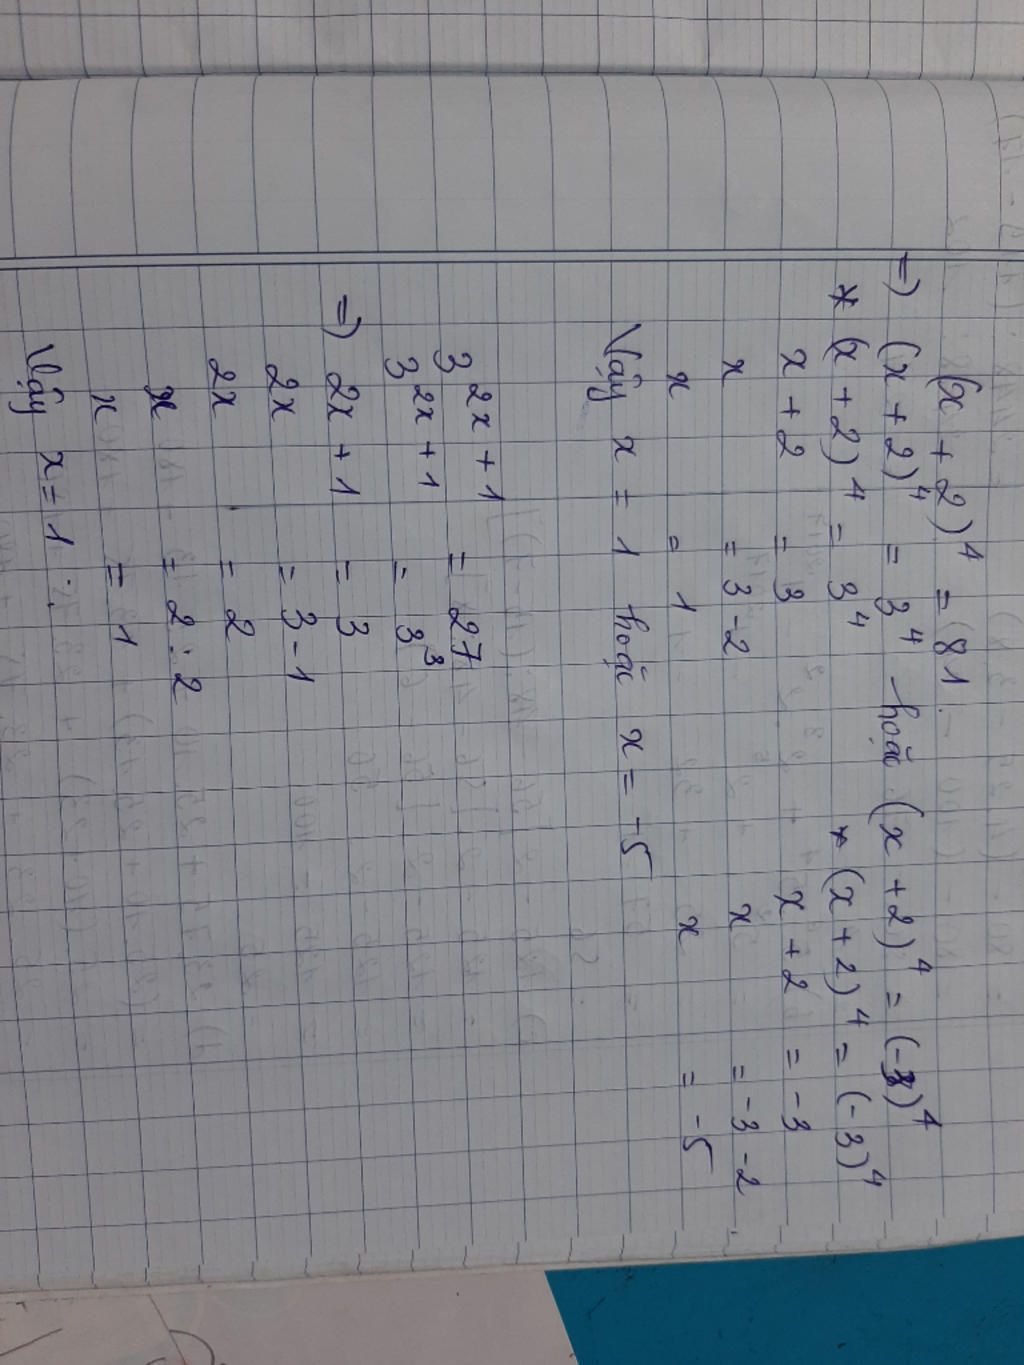 (x + 2)⁴ = 81
=) (x + 2)⁴ = 3⁴ hoặc (x + 2)⁴ = (-3)⁴
* (x + 2)⁴ = 3⁴ * (x + 2)⁴ = (-3)⁴
x + 2 = 3 x + 2 = -3
x = 3 - 2 x = -3 - 2
x = 1 x = -5
Vậy x = 1 hoặc x = -5
3²ˣ⁺¹ = 27
3²ˣ⁺¹ = 3³
=) 2x + 1 = 3
2x = 3 - 1
2x = 2
x = 2 : 2
x = 1
Vậy x = 1